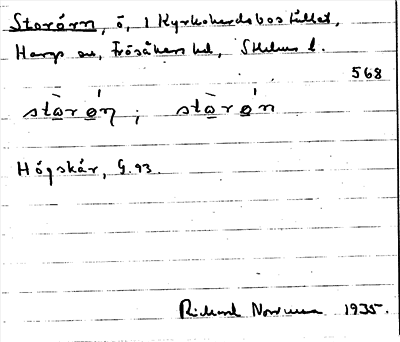 Storörn, ö, i Kyrkoherdebostället,
Hargs sn, Frösåkers hd, Sthlms l.
568
stòrǿŋ ; stòrǿn
Högskär, G. 93.
Richard Norrman 1935.